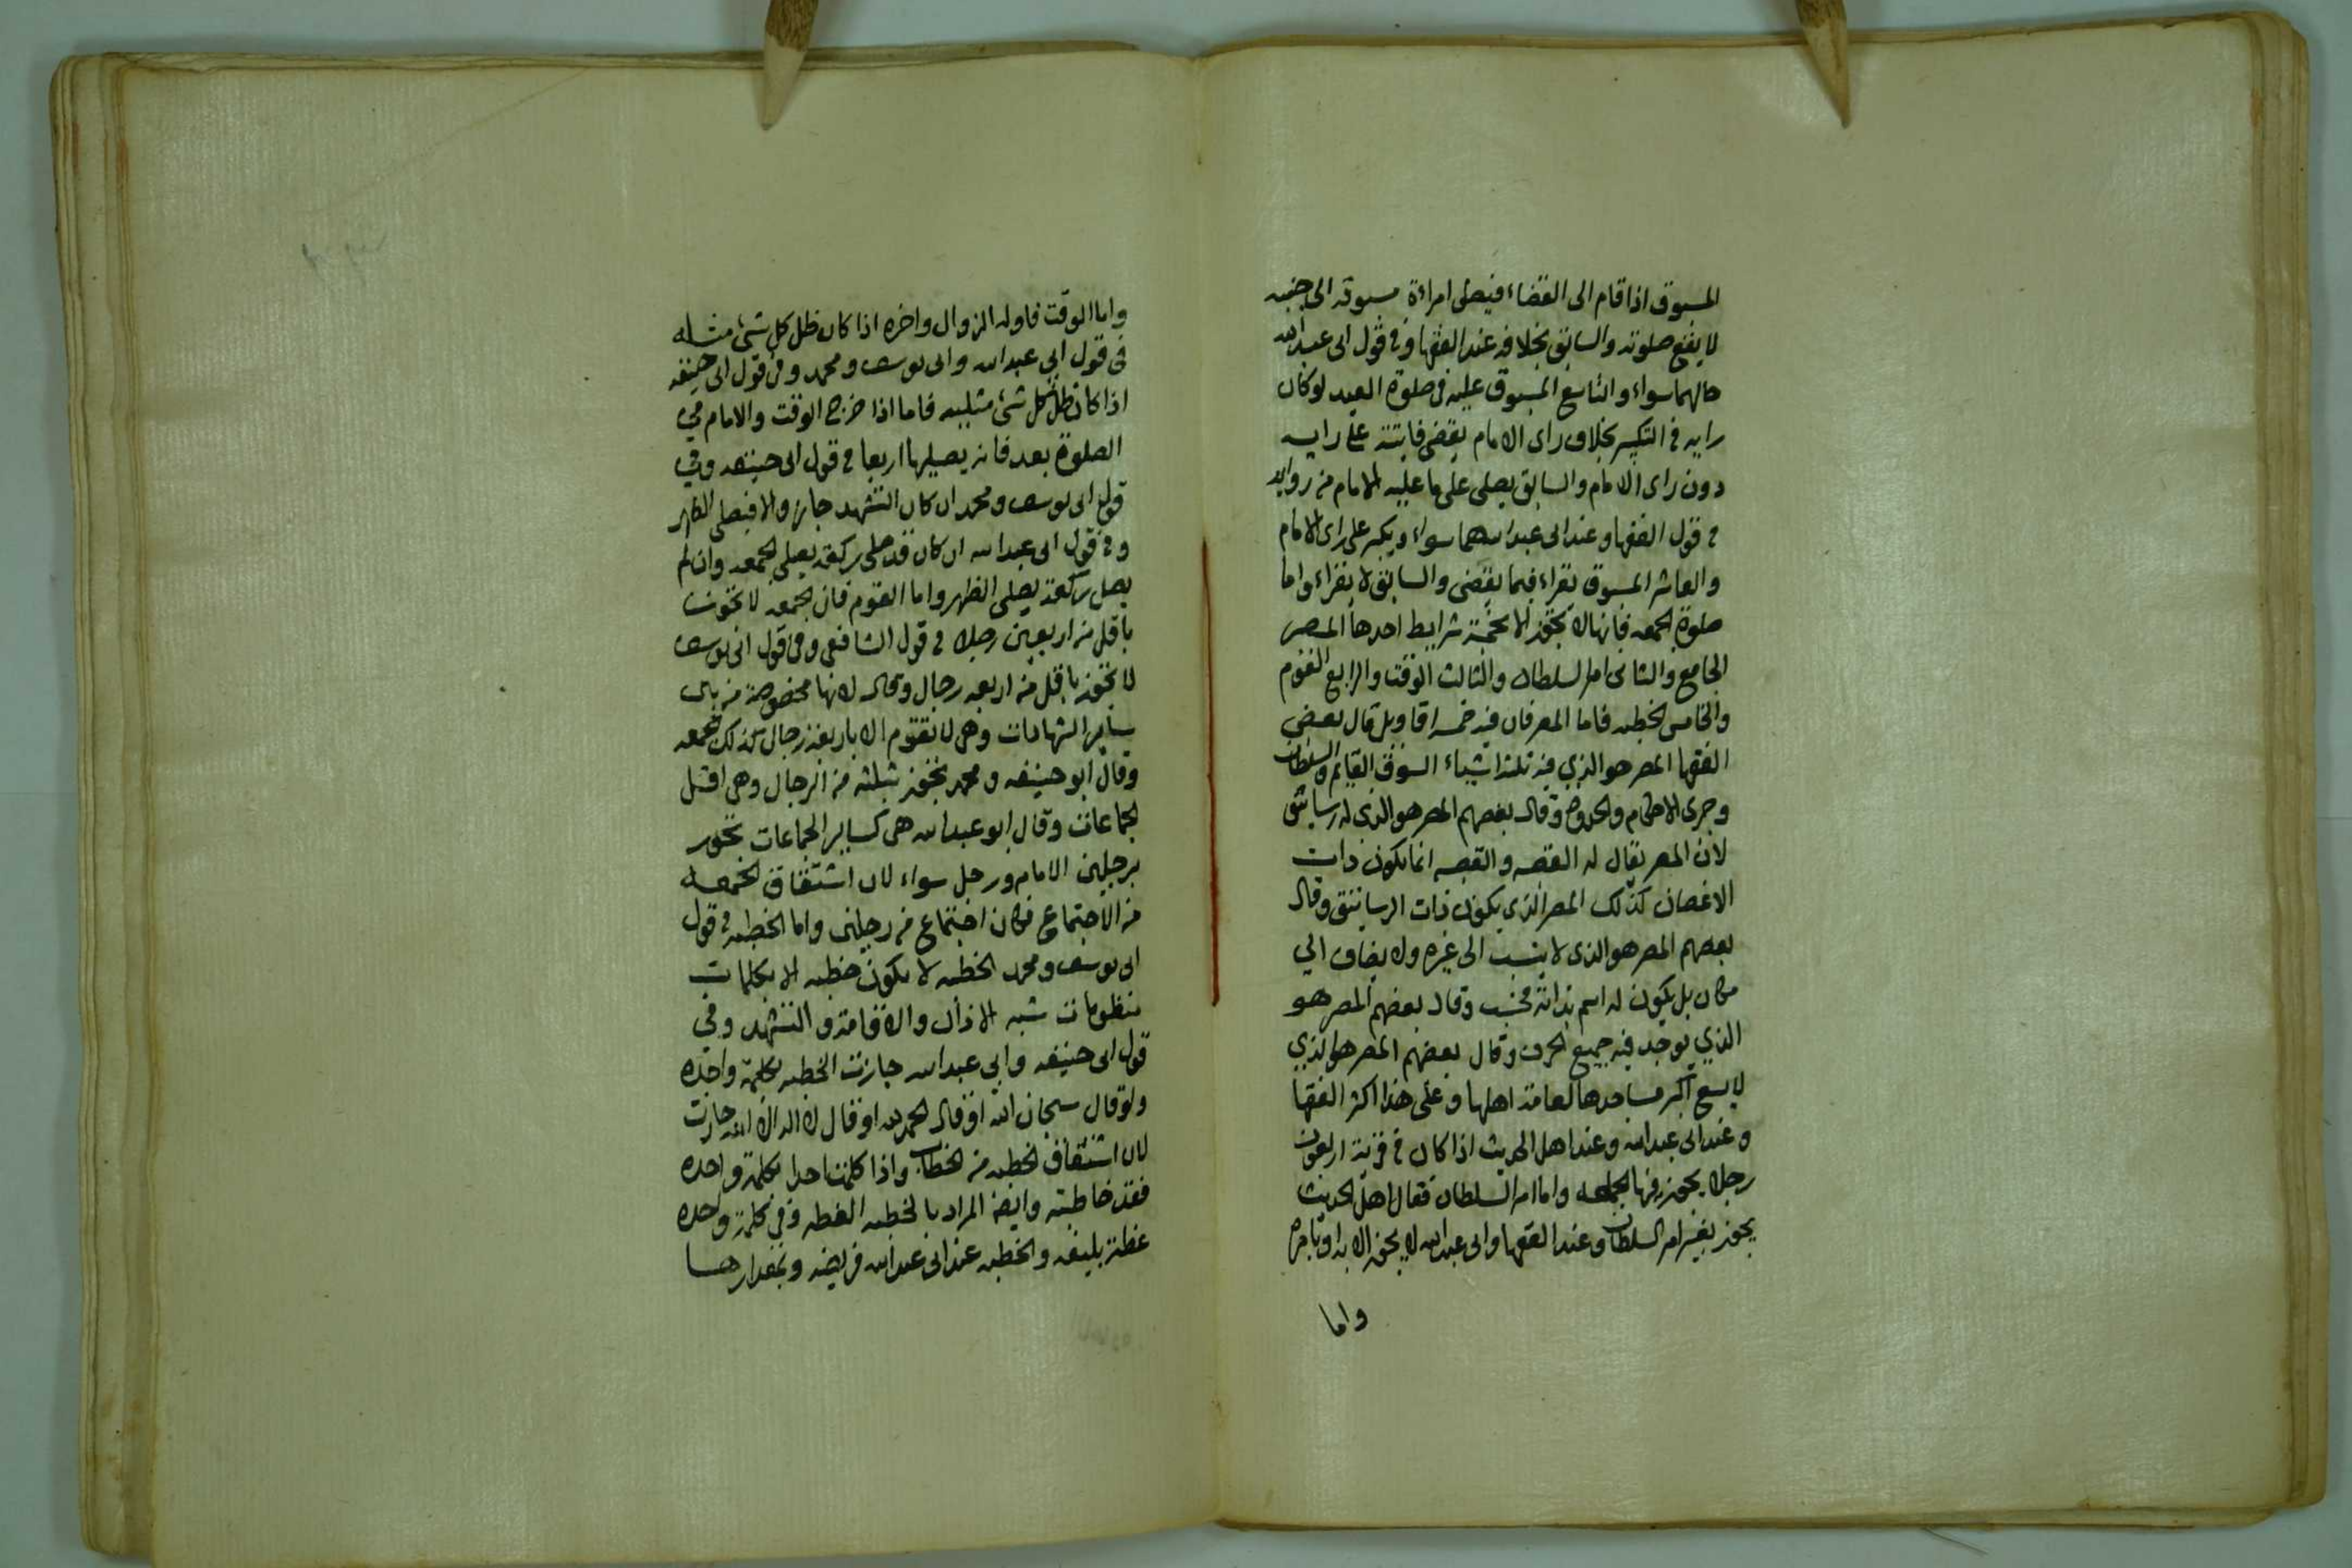 المسبوق اذا قام الى القضاء فيصلى امراءة مسبوقه الى جنبه
لا يقع صلوته والسابق بخلافه عند الفقها وفى قول ابى عبد الله
حالهما سواء والتاسع المسبوق عليه فى صلوة العيد لو كان
رايه فى التكبير بخلاف راى الامام يقضى فايتته على رايه
دون راى الامام والسابق يصلى على ما عليه الامام من روايه
فى قول الفقها وعند ابى عبد الله هما سواء ويكبر على راى الامام
والعاشر المسبوق يقراء فيما يقضى والسابق لا يقراء واما
صلوة الجمعه فانها لا تجوز الا بخمسة شرايط احدها المصر
الجامع والثانى امر السلطان والثالث الوقت والرابع القوم
والخامس الخطبه فاما المصر فان فيه خمسه اقاويل قال بعض
الفقها المصر هو الذي فيه ثلثة اشياء السوق القايم والسلطان
وجرى الاحكام والحدود وقال بعضهم المصر هو الذى له رساتيق
لان المصر يقال له القصبه والقصبه انما يكون ذات
الاغصان كذلك المصر الذى يكون ذات الرساتيق وقال
بعضهم المصر هو الذى لا ينسب الى غيره ولا يضاف الي
مكان بل يكون له اسم بذاته فحسب وقال بعضهم المصر هو
الذي يوجد فيه جميع الحرف وقال بعضهم المصر هو الذي
لا يسع اكبر مساجدها لعامة اهلها وعلى هذا اكثر الفقها
وعند ابى عبد الله وعند اهل الحديث اذا كان فى قرية اربعون
رجلا يجوز فيها الجمعه واما امر السلطان فقال اهل الحديث
يجوز بغير امر السلطان وعند الفقها وابى عبد الله لا يجوز الا به او بامره
واما
واما الوقت فاوله الزوال واخره اذا كان ظل كل شئ مثله
فى قول ابي عبد الله وابى يوسف ومحمد وفى قول ابى حنيفه
اذا كان ظل كل شئ مثليه فاما اذا خرج الوقت والامام فى
الصلوة بعد فانه يصليها اربعا فى قول ابى حنيفه وفي
قول ابى يوسف ومحمد ان كان التشهد جاز والا فيصلى الظهر
وفى قول ابى عبد الله ان كان قد صلى ركعة يصلى الجمعه وان لم
يصل ركعة يصلى الظهر واما القوم فان الجمعه لا تجوز
باقل من اربعين رجلا فى قول الشافعى وفى قول ابى يوسف
لا تجوز باقل من اربعه رجال وقال لانها مخصوصة من بين
ساير الشهادات وهى لا تقوم الا باربعة رجال كذلك الجمعه
وقال ابو حنيفه ومحمد تجوز بثلثه من الرجال وهى اقل
الجماعات وقال ابو عبد الله هى كساير الجماعات تجوز
برجلين الامام ورجل سواء لان اشتقاق الجمعه
من الاجتماع فكان اجتماع من رجلين واما الخطبه فى قول
ابى يوسف ومحمد الخطبه لا يكون خطبه الا بكلمات
منظومات شبه الاذان والاقامة والتشهد وفي
قول ابى حنيفه وابي عبد الله جازت الخطبه بكلمة واحده
ولو قال سبحان الله او قال الحمد لله او قال لا اله الا الله جازت
لان اشتقاق الخطبه من الخطاب واذا كلمت احدا بكلمة واحده
فقد خاطبته وايضا المراد بالخطبه العظه وفي كلمة واحده
عظة بليغه والخطبه عند ابى عبد الله فريضه وبمقدارها